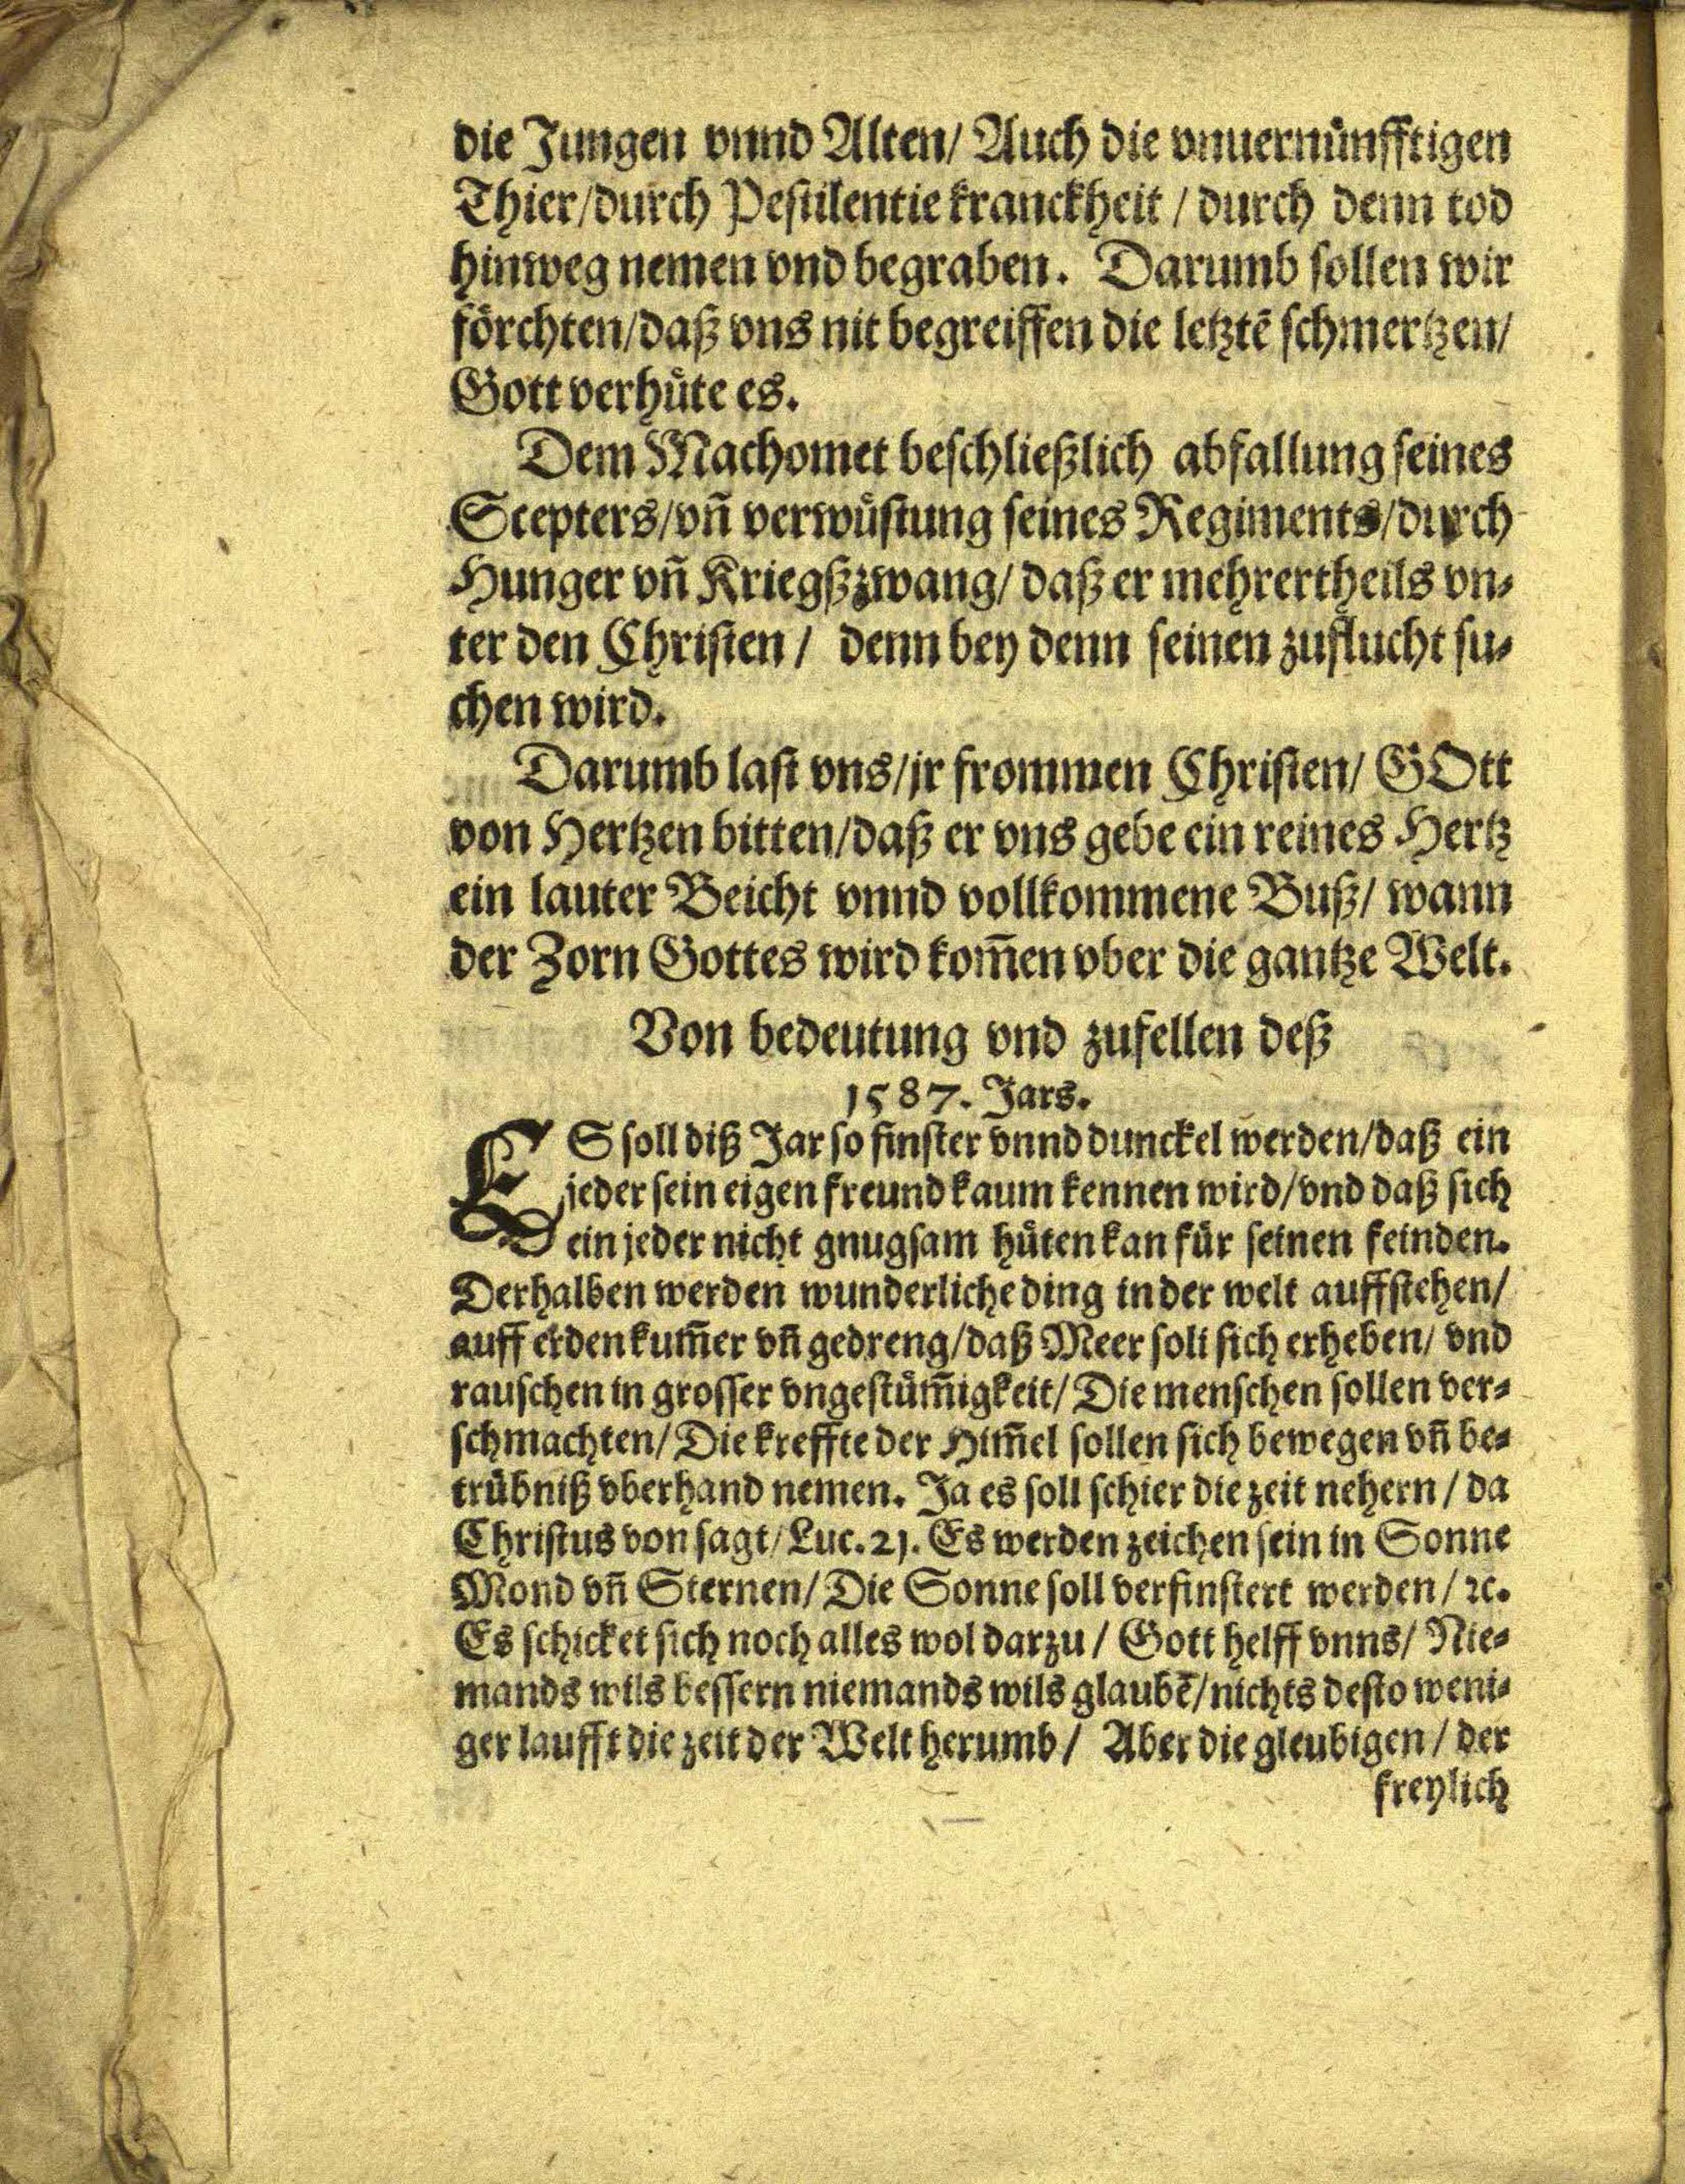 die Jungen vnnd Alten/ Auch die vnuernünfftigen
Thier/durch Pestilentie kranckheit / durch denn tod
hinweg nemen vnd begraben. Darumb sollen wir
förchten/daß vns nit begreiffen die letztē schmertzen/
Gott verhüte es.
Dem Machomet beschließlich abfallung seines
Scepters/vñ verwüstung seines Regiments/durch
Hunger vñ Kriegßzwang/ daß er mehrertheils vn⸗
ter den Christen / denn bey denn seinen zuflucht su⸗
chen wird.
Darumb last vns/jr frommen Christen/ GOtt
von Hertzen bitten/daß er vns gebe ein reines Hertz
ein lauter Beicht vnnd vollkommene Buß/ wann
der Zorn Gottes wird kom̄en vber die gantze Welt.
Von bedeutung vnd zufellen deß
1587. Jars.
ES soll diß Jar so finster vnnd dunckel werden/daß ein
jeder sein eigen freund kaum kennen wird/vnd daß sich
ein jeder nicht gnugsam hüten kan für seinen feinden.
Derhalben werden wunderliche ding in der welt auffstehen/
auff erden kum̄er vñ gedreng/daß Meer soll sich erheben/ vnd
rauschen in grosser vngestüm̄igkeit/ Die menschen sollen ver⸗
schmachten/ Die kreffte der Him̄el sollen sich bewegen vñ be⸗
trübniß vberhand nemen. Ja es soll schier die zeit nehern / da
Christus von sagt/ Luc. 21. Es werden zeichen sein in Sonne
Mond vñ Sternen/ Die Sonne soll verfinstert werden / ꝛc.
Es schicket sich noch alles wol darzu / Gott helff vnns/ Nie⸗
mands wils bessern niemands wils glaubē/nichts desto weni⸗
ger laufft die zeit der Welt herumb / Aber die gleubigen / der
freylich